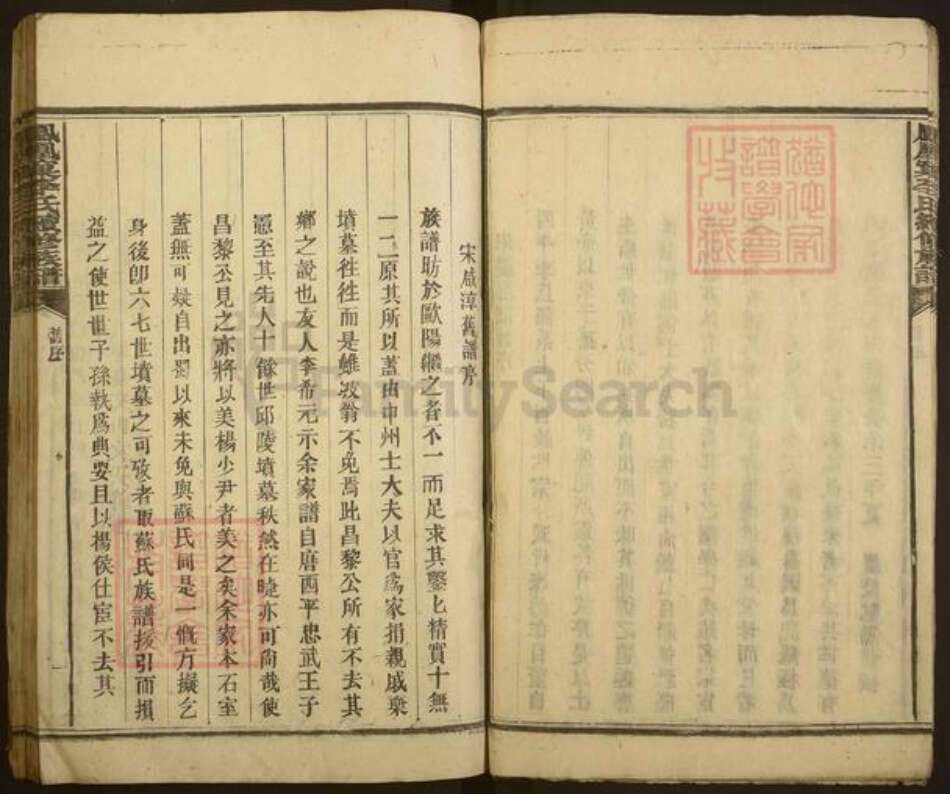 宋咸淳舊譜序
族譜昉於歐陽繼之者不一而足求其鑿匕精實十無
一二原其所以蓋由中州士大夫以官爲家捐親戚棄
墳墓徃徃而是雖坡翁不免焉此昌黎公所有不去其
鄉之說也友人李希元示余家譜自唐西平忠武王子
愿至其先人十餘世邱陵墳墓秩然在睫亦可尚哉使
昌黎公見之亦將以美楊少尹者美之矣余家本石室
蓋無可疑自出蜀以來未免與蘇氏同是一慨方擬乞
身後卽六七世墳墓之可攷者取蘇氏族譜援引而損
益之使世世子孫執爲典要且以楊侯仕宦不去其
李氏續修族譜
舊序
一
譜學會
收藏
FamilySearch